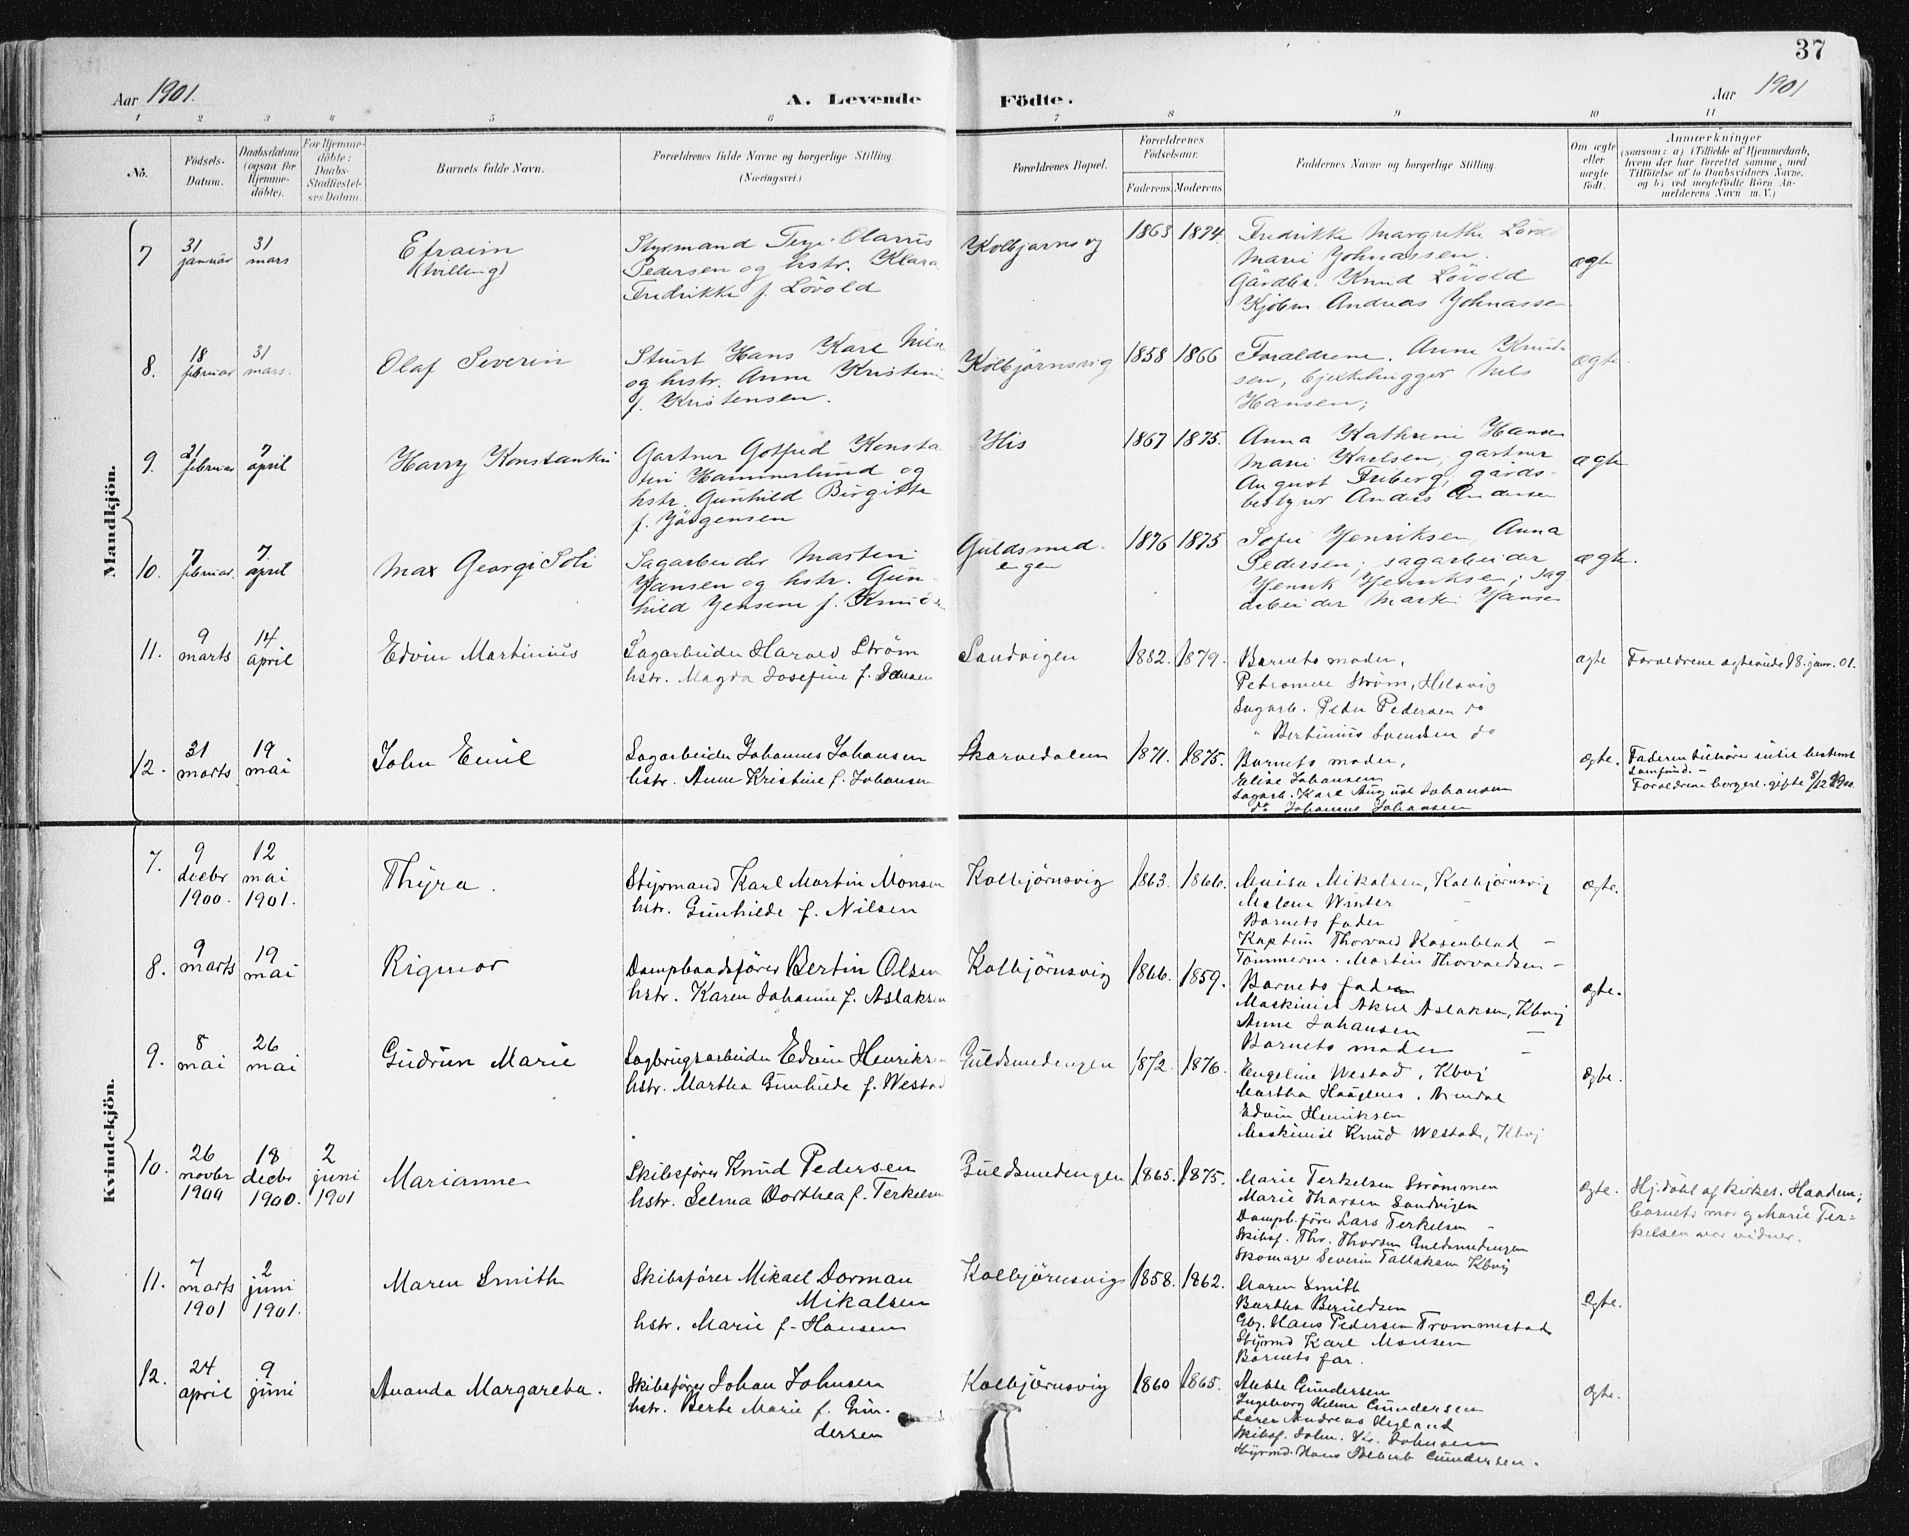 37
Aar 1901. A. Levende Födte. Aar 1901
1 2 3 4 5 6 7 8 9 10 11
No.
Födsels-
Datum.
Daabsdatum
(ogsaa for
Hjemme-
döbte).
For Hjemme-
döbte:
Daabs-
Stadfæstel-
ses Datum.
Barnets fulde Navn.
Forældrenes fulde Navne og borgerlige Stilling.
(Næringsvei.)
Forældrenes Bopæl.
Forældrenes
Födselsaar.
Faderens Moderens
Faddernes Navne og borgerlige Stilling.
Om ægte
eller
uægte
födt.
Anmærkninger
(saasom: a) i Tilfælde af Hjemmedaab,
hvem der har forrettet samme, med
Tilföielse af to Daabsvidners Navne,
og b) ved uægtefödte Börn An-
melderens Navn m. V.)
Mandkjön.
7
31
januar
31
mars
Efraim
(tvilling)
Styrmand Terje Olavus
Pedersen og hstr. Klara
Fredrikke f. Lövold
Kolbjørnsvig
1863 1874.
Fredrikke Margrethe Lövold
Marie Johnassen.
Gårdbr. Knud Lövold
Kjöbm Andreas Johnassen
ægte
8.
18
februar
31
mars.
Olaf Severin
Stuert Hans Karl Nils
og hstr. Anne Kristine
f. Kristensen.
Kolbjörnsvig
1858 1866
Forældrene. Anne Knud-
sen, bjelkehugger Nils
Hansen;
ægte
9.
21
februar
7
april
Harry Konstantin
Gartner Gotfred Konsta
tin Hammerlund og
hstr. Gunhild Birgitte
f. Jörgensen
His
1867 1875.
Anna Kathrine Hansen
Marie Karlsen; gartner
August Friberg; gårds-
bestyrer Anders Andersen
ægte
10.
7
februar.
7.
april
Max Georg Soli
Sagarbeider Martin
Hansen og hstr. Gun-
hild Jensine f. Knuds
Guldsmed-
engen
1876 1875
Sofie Henriksen, Anna
Pedersen; sagarbeider
Henrik Henriksen; sag
arbeider Martin Hansen
ægte.
11.
9
marts
14
april
Edvin Martinius
Sagarbeider Harald Ström
hstr. Magda Josefine f. Jensen
Sandvigen
1882. 1879.
Barnets moder,
Petromine Ström, Helsvig
Sagarb. Peder Pedersen do
" Bertinius Svendsen do
ægte
Forældrene ægteviede 18. janr. 01.
12.
31
marts
19
mai
John Emil
Sagarbeider Johannes Johansen
hstr. Anne Kristine f. Johansen
Skarvedalen
1871. 1875.
Barnets moder,
Elise Johansen
Sagarb. Karl August Johansen
do Johannes Johansen
ægte.
Faderen tilhører intet bestemt
samfund. —
Forældrene borgerl. gifte 8/12 1900.
Kvindekjön.
7.
9
decbr
1900.
12
mai
1901.
Thyra.
Styrmand Karl Martin Monsen
hstr. Gunhilde f. Nilsen
Kolbjörnsvig
1863. 1866.
Maisa Mikalsen, Kolbjörnsvig
Malene Winter
Barnets fader
Kaptein Thorvald Rosenblad —
Tömmerm. Martin Thorvaldsen —
ægte.
8.
9
marts
19
mai
Rigmor
Dampbaadsfører Bertin Olsen
hstr. Karen Johanne f. Aslaksen
Kolbjörnsvig
1866. 1859.
Barnets fader
Maskinist Aksel Aslaksen, Kbvig
Anne Johansen —
Barnets moder —
ægte.
9.
8
mai
26
mai
Gudrun Marie
Sagbrugsarbeider Edvin Henriksen
hstr. Martha Gunhilde f. Westad
Guldsmedengen
1872. 1876.
Engeline Westad, Kbvj
Martha Haagenes, Arendal
Edvin Henriksen
Maskinist Knud Westad, Kbvj
ægte.
10.
26
novbr
1900
18
decbr
1900.
2
juni
1901
Marianne
Skibsfører Knud Pedersen
hstr. Selma Dorthea f. Terkelsen
Guldsmedengen
1865. 1875.
Marie Terkelsen Strømmen
Marie Thorsen Sandvigen
Dampb.fører Lars Terkelsen -
Skibsf. Thr. Thorsen Guldsmedengen
Skomager Severin Tallaksen Kbvig
ægte.
Hj.døbt af kirkes. Haadem;
barnets mor og Marie Ter-
kelsen var vidner.
11.
7
marts
1901
2
juni
1901.
Maren Smith
Skibsfører Mikael Dorman
Mikalsen
hstr. Marie f. Hansen
Kolbjörnsvig
1858. 1862.
Maren Smith
Bertha Beruldsen
Gbr. Hans Pedersen Trommestad
Styrmd Karl Monsen
Barnets far.
Ægte.
12.
24
april
9
juni
Amanda Margaretha.
Skibsfører Johan Johnsen
hstr. Berte Marie f. Gun-
dersen
Kolbjörnsvig
1860 1865.
Gundersen
Ingeborg Helene Gundersen
Lærer Andreas Uegland
Skibsf. John. Johnsen
Styrmd. Hans Gundersen.
ægte.